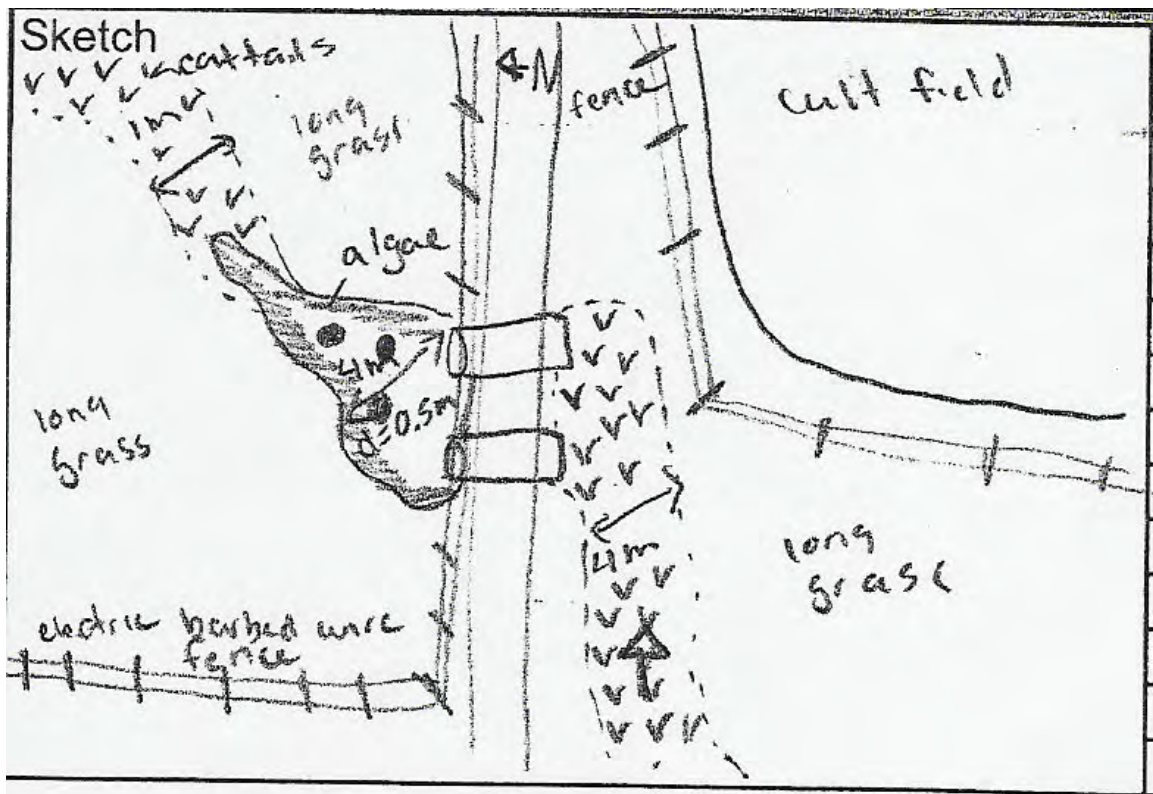 Sketch
cattails
1m
long
grass
N
fence
cult field
algae
4m
d=0.5m
long
grass
4m
long
grass
electric barbed wire
fence